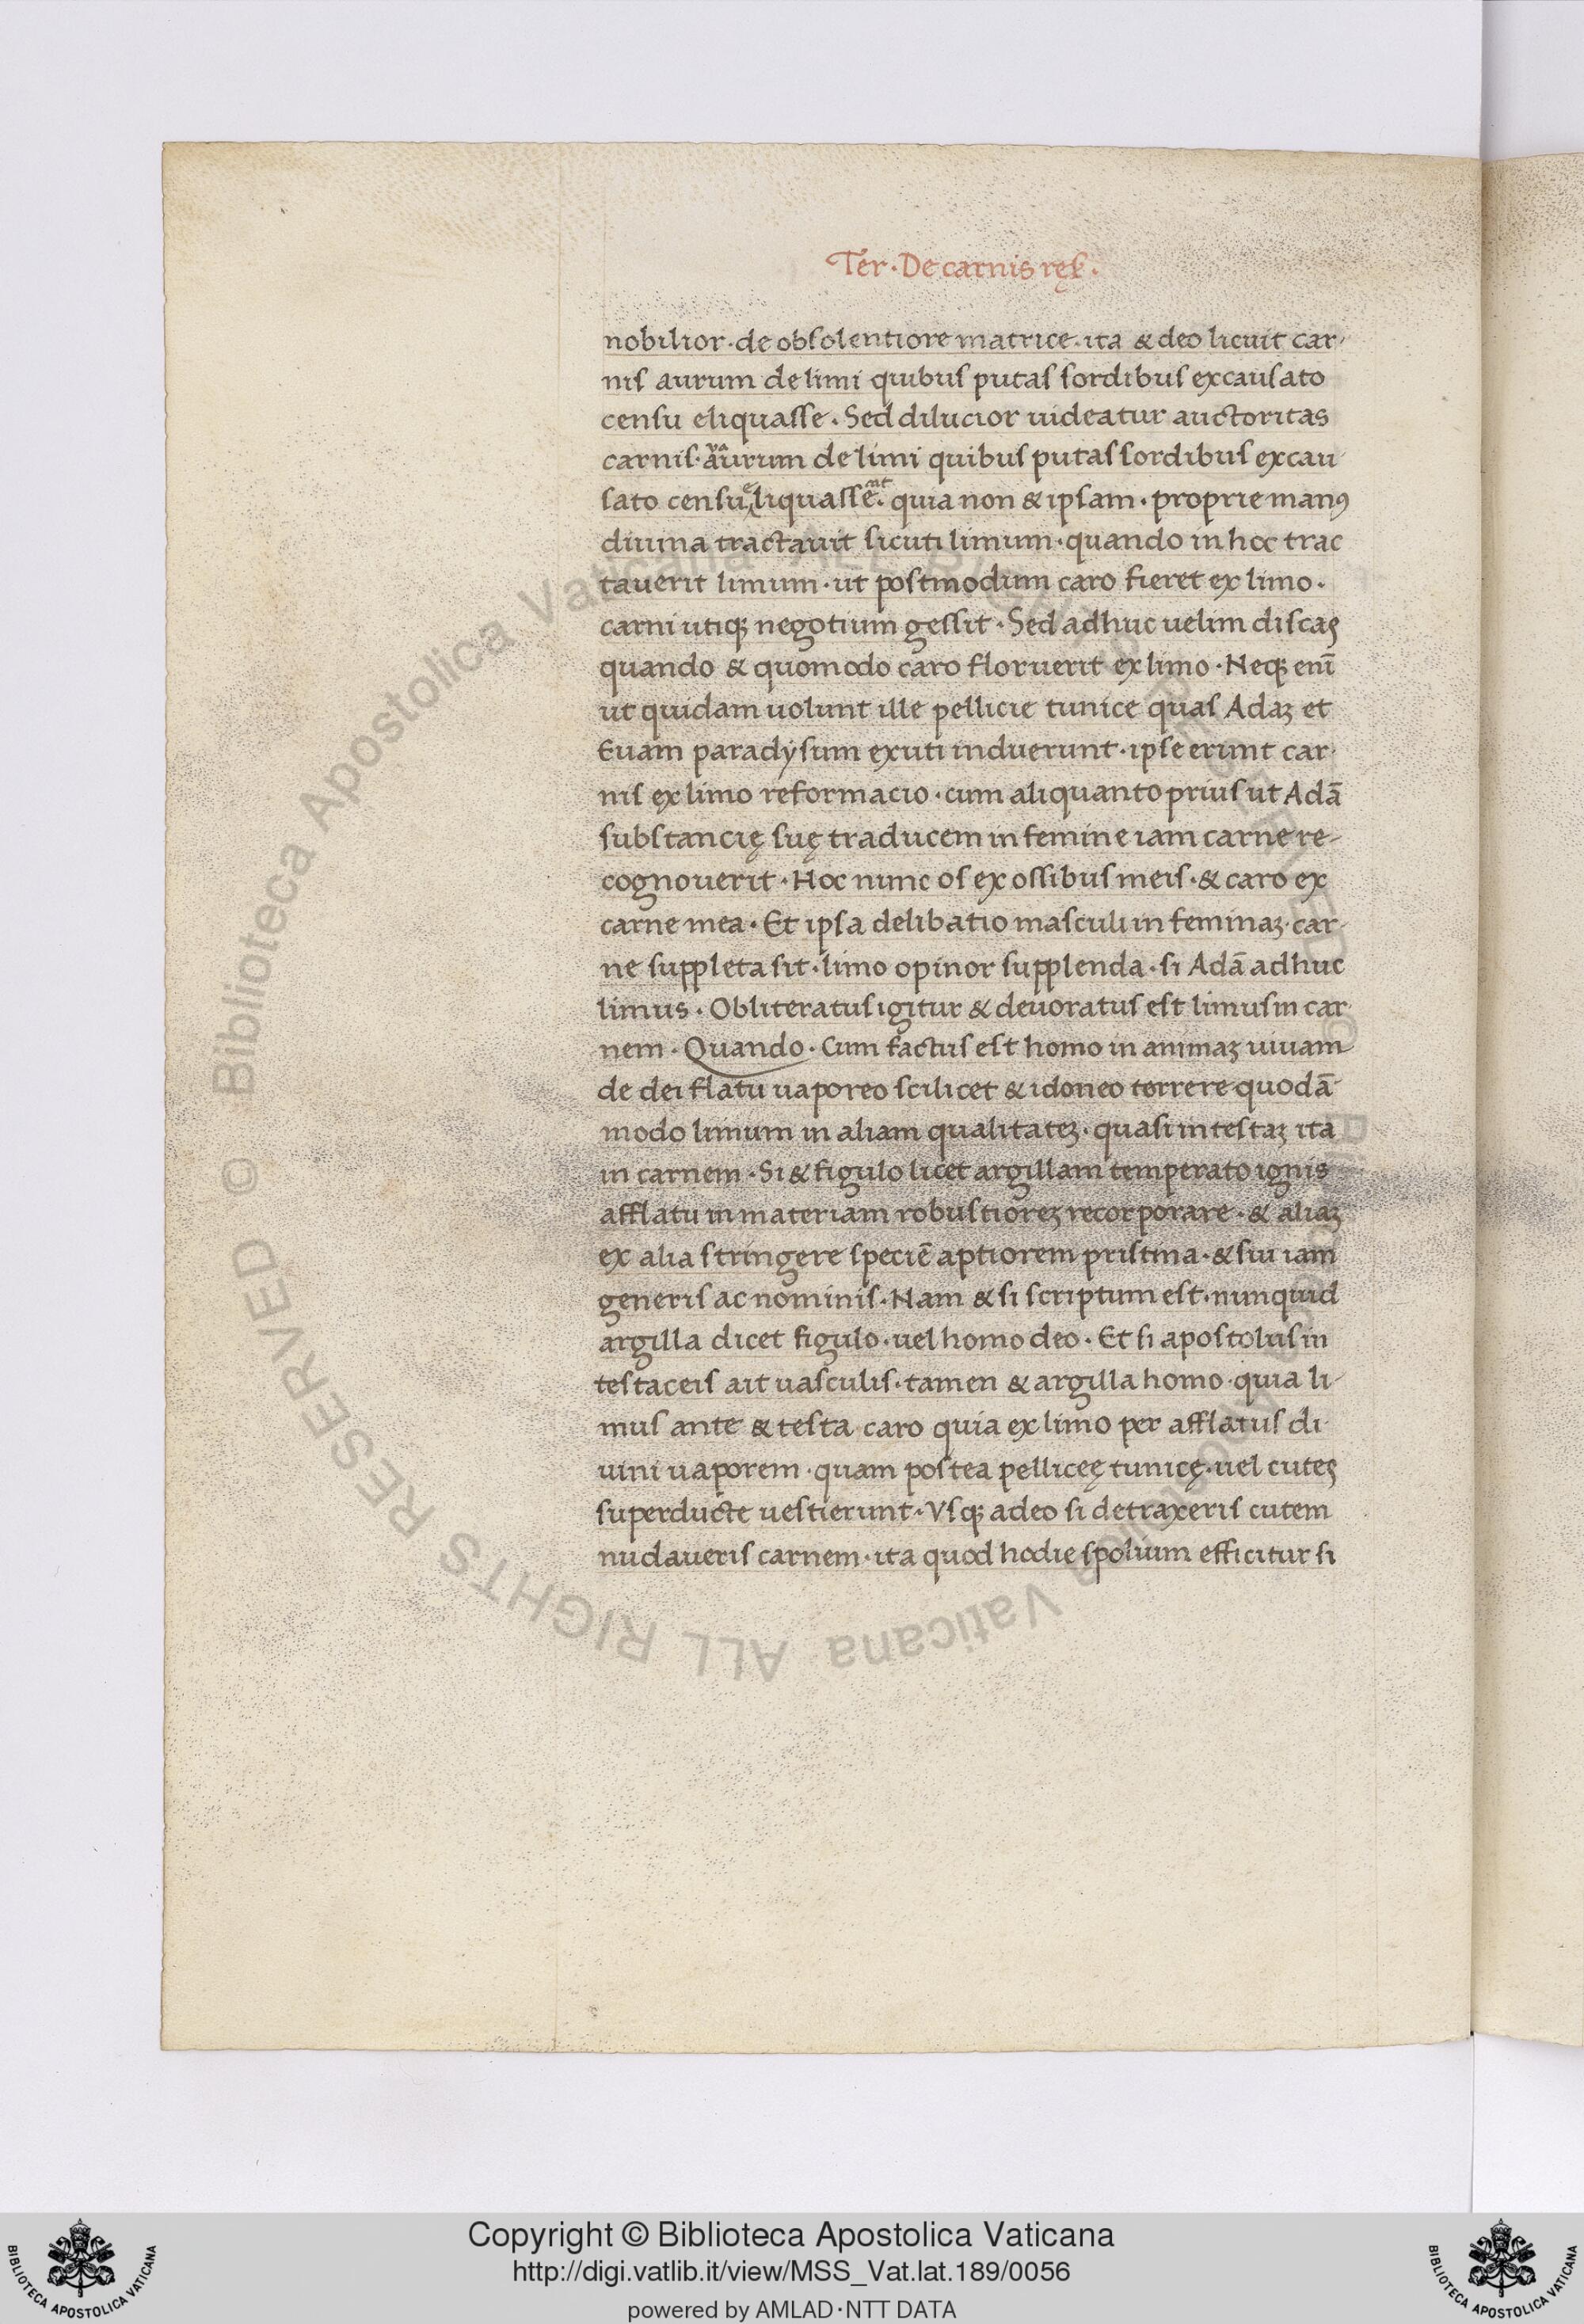 Ter · De carnis ręẜ ·
nobilior · de obsolentiore matrice · ita & deo licuit car-
nis aurum de limi quibus putas sordibus excausato
censu eliquasse · Sed dilucior uideatur auctoritas
carnis · aurum de limi quibus putas sordibus excau
sato censu eliquasse nt · quia non & ipsam · proprie manꝰ
diuina tractauit sicuti limum · quando in hoc trac
tauerit limum · ut postmodum caro fieret ex limo ·
carni utiqꝫ negotium gessit · Sed adhuc uelim discas
quando & quomodo caro floruerit ex limo · Neqꝫ enī
ut quidam uolunt ille pellicie tunice quas Adaꝫ et
Euam paradysum exuti induerunt · ipse erunt car-
nis ex limo reformacio · cum aliquanto prius ut Adā
substancię suę traducem in femine iam carne re-
cognouerit · Hoc nunc os ex ossibus meis · & caro ex
carne mea · Et ipsa delibatio masculi in feminaꝫ · car-
ne suppleta sit · limo opinor supplenda · si Adā adhuc
limus · Obliteratus igitur & deuoratus est limus in car
nem · Quando · Cum factus est homo in animaꝫ uiuam
de dei flatu uaporeo scilicet & idoneo torrere quodā-
modo limum in aliam qualitateꝫ · quasi in testaꝫ ita
in carnem · Si & figulo licet argillam temperato ignis
afflatu in materiam robustioreꝫ recorporare · & aliaꝫ
ex alia stringere speciē aptiorem pristina · & sui iam
generis ac nominis · Nam & si scriptum est · nunquid
argilla dicet figulo · uel homo deo · Et si apostolus in
testaceis ait uasculis · tamen & argilla homo · quia li-
mus ante & testa caro quia ex limo per afflatus di-
uini uaporem · quam postea pelliceę tunicę · uel cutes
superducte uestierunt · Vsqꝫ adeo si detraxeris cutem
nudaueris carnem · ita quod hodie spolium efficitur si
© Biblioteca Apostolica Vaticana ALL RIGHTS RESERVED
Copyright © Biblioteca Apostolica Vaticana
http://digi.vatlib.it/view/MSS_Vat.lat.189/0056
powered by AMLAD · NTT DATA
BIBLIOTECA APOSTOLICA VATICANA
BIBLIOTECA APOSTOLICA VATICANA